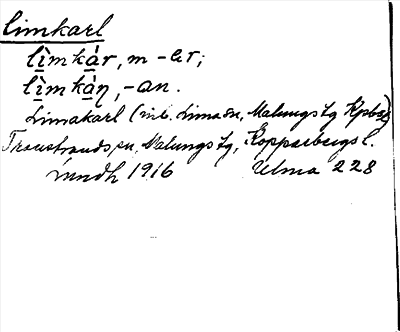 limkarl
lìmkár, m -ar;
lìmkáη, -an.
Limakarl (inb. Lima sn, Malungs tg Kpbs l)
Transtrands sn, Malungs tg, Kopparbergs l.
Lundh 1916 Ulma 228